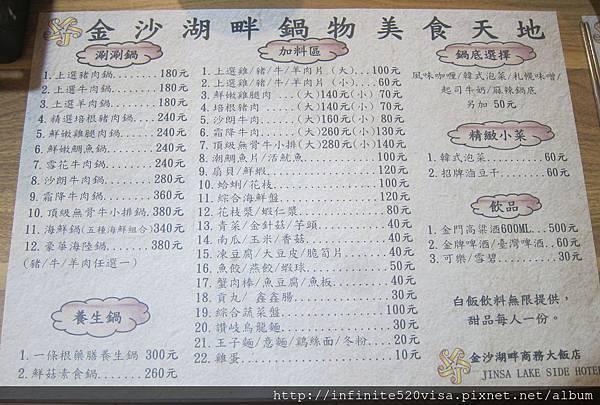 金沙湖畔鍋物美食天地
涮涮鍋
1.上選豬肉鍋........180元
2.上選牛肉鍋........180元
3.上選羊肉鍋........180元
4.精選培根豬肉鍋....240元
5.鮮嫩雞腿肉鍋......240元
6.鮮嫩鯛魚鍋........240元
7.雪花牛肉鍋........240元
8.沙朗牛肉鍋........280元
9.霜降牛肉鍋........360元
10.頂級無骨牛小排鍋.380元
11.海鮮鍋(五種海鮮組合)340元
12.豪華海陸鍋.......380元
(豬/牛/羊肉任選一)
養生鍋
1.一條根藥膳養生鍋 300元
2.鮮菇素食鍋........260元
加料區
1.上選雞/豬/牛/羊肉片(大)...100元
2.上選雞/豬/牛/羊肉片(小)....60元
3.鮮嫩雞腿肉....(大)140元(小)70元
4.培根豬肉......(大)140元(小)70元
5.沙朗牛肉......(大)160元(小)80元
6.霜降牛肉......(大)260元(小)130元
7.頂級無骨牛小排(大)280元(小)140元
8.潮鯛魚片/活魷魚...........100元
9.扇貝/鮮蝦.................120元
10.蛤蜊/花枝................100元
11.綜合海鮮盤...............120元
12.花枝漿/蝦仁漿.............80元
13.青菜/金針菇/芋頭..........40元
14.南瓜/玉米/香菇............40元
15.凍豆腐/大豆皮/脆筍片......40元
16.魚餃/燕餃/蝦球............50元
17.蟹肉棒/魚豆腐/魚板........40元
18.貢丸/ 鑫鑫腸..............30元
19.綜合蔬菜盤...............100元
20.讚岐烏龍麵................30元
21.王子麵/意麵/鷄絲麵/冬粉...20元
22.雞蛋......................10元
鍋底選擇
風味咖喱/韓式泡菜/札幌味噌/
起司牛奶/麻辣鍋底
另加 50元
精緻小菜
1.韓式泡菜..........60元
2.招牌滷豆干........60元
飲品
1.金門高粱酒600ML...500元
2.金牌啤酒/臺灣啤酒..60元
3.可樂/雪碧..........30元
白飯飲料無限提供,
甜品每人一份。
金沙湖畔商務大飯店
JINSA LAKE SIDE HOTEL
http://infinite520visa.pixnet.net/album